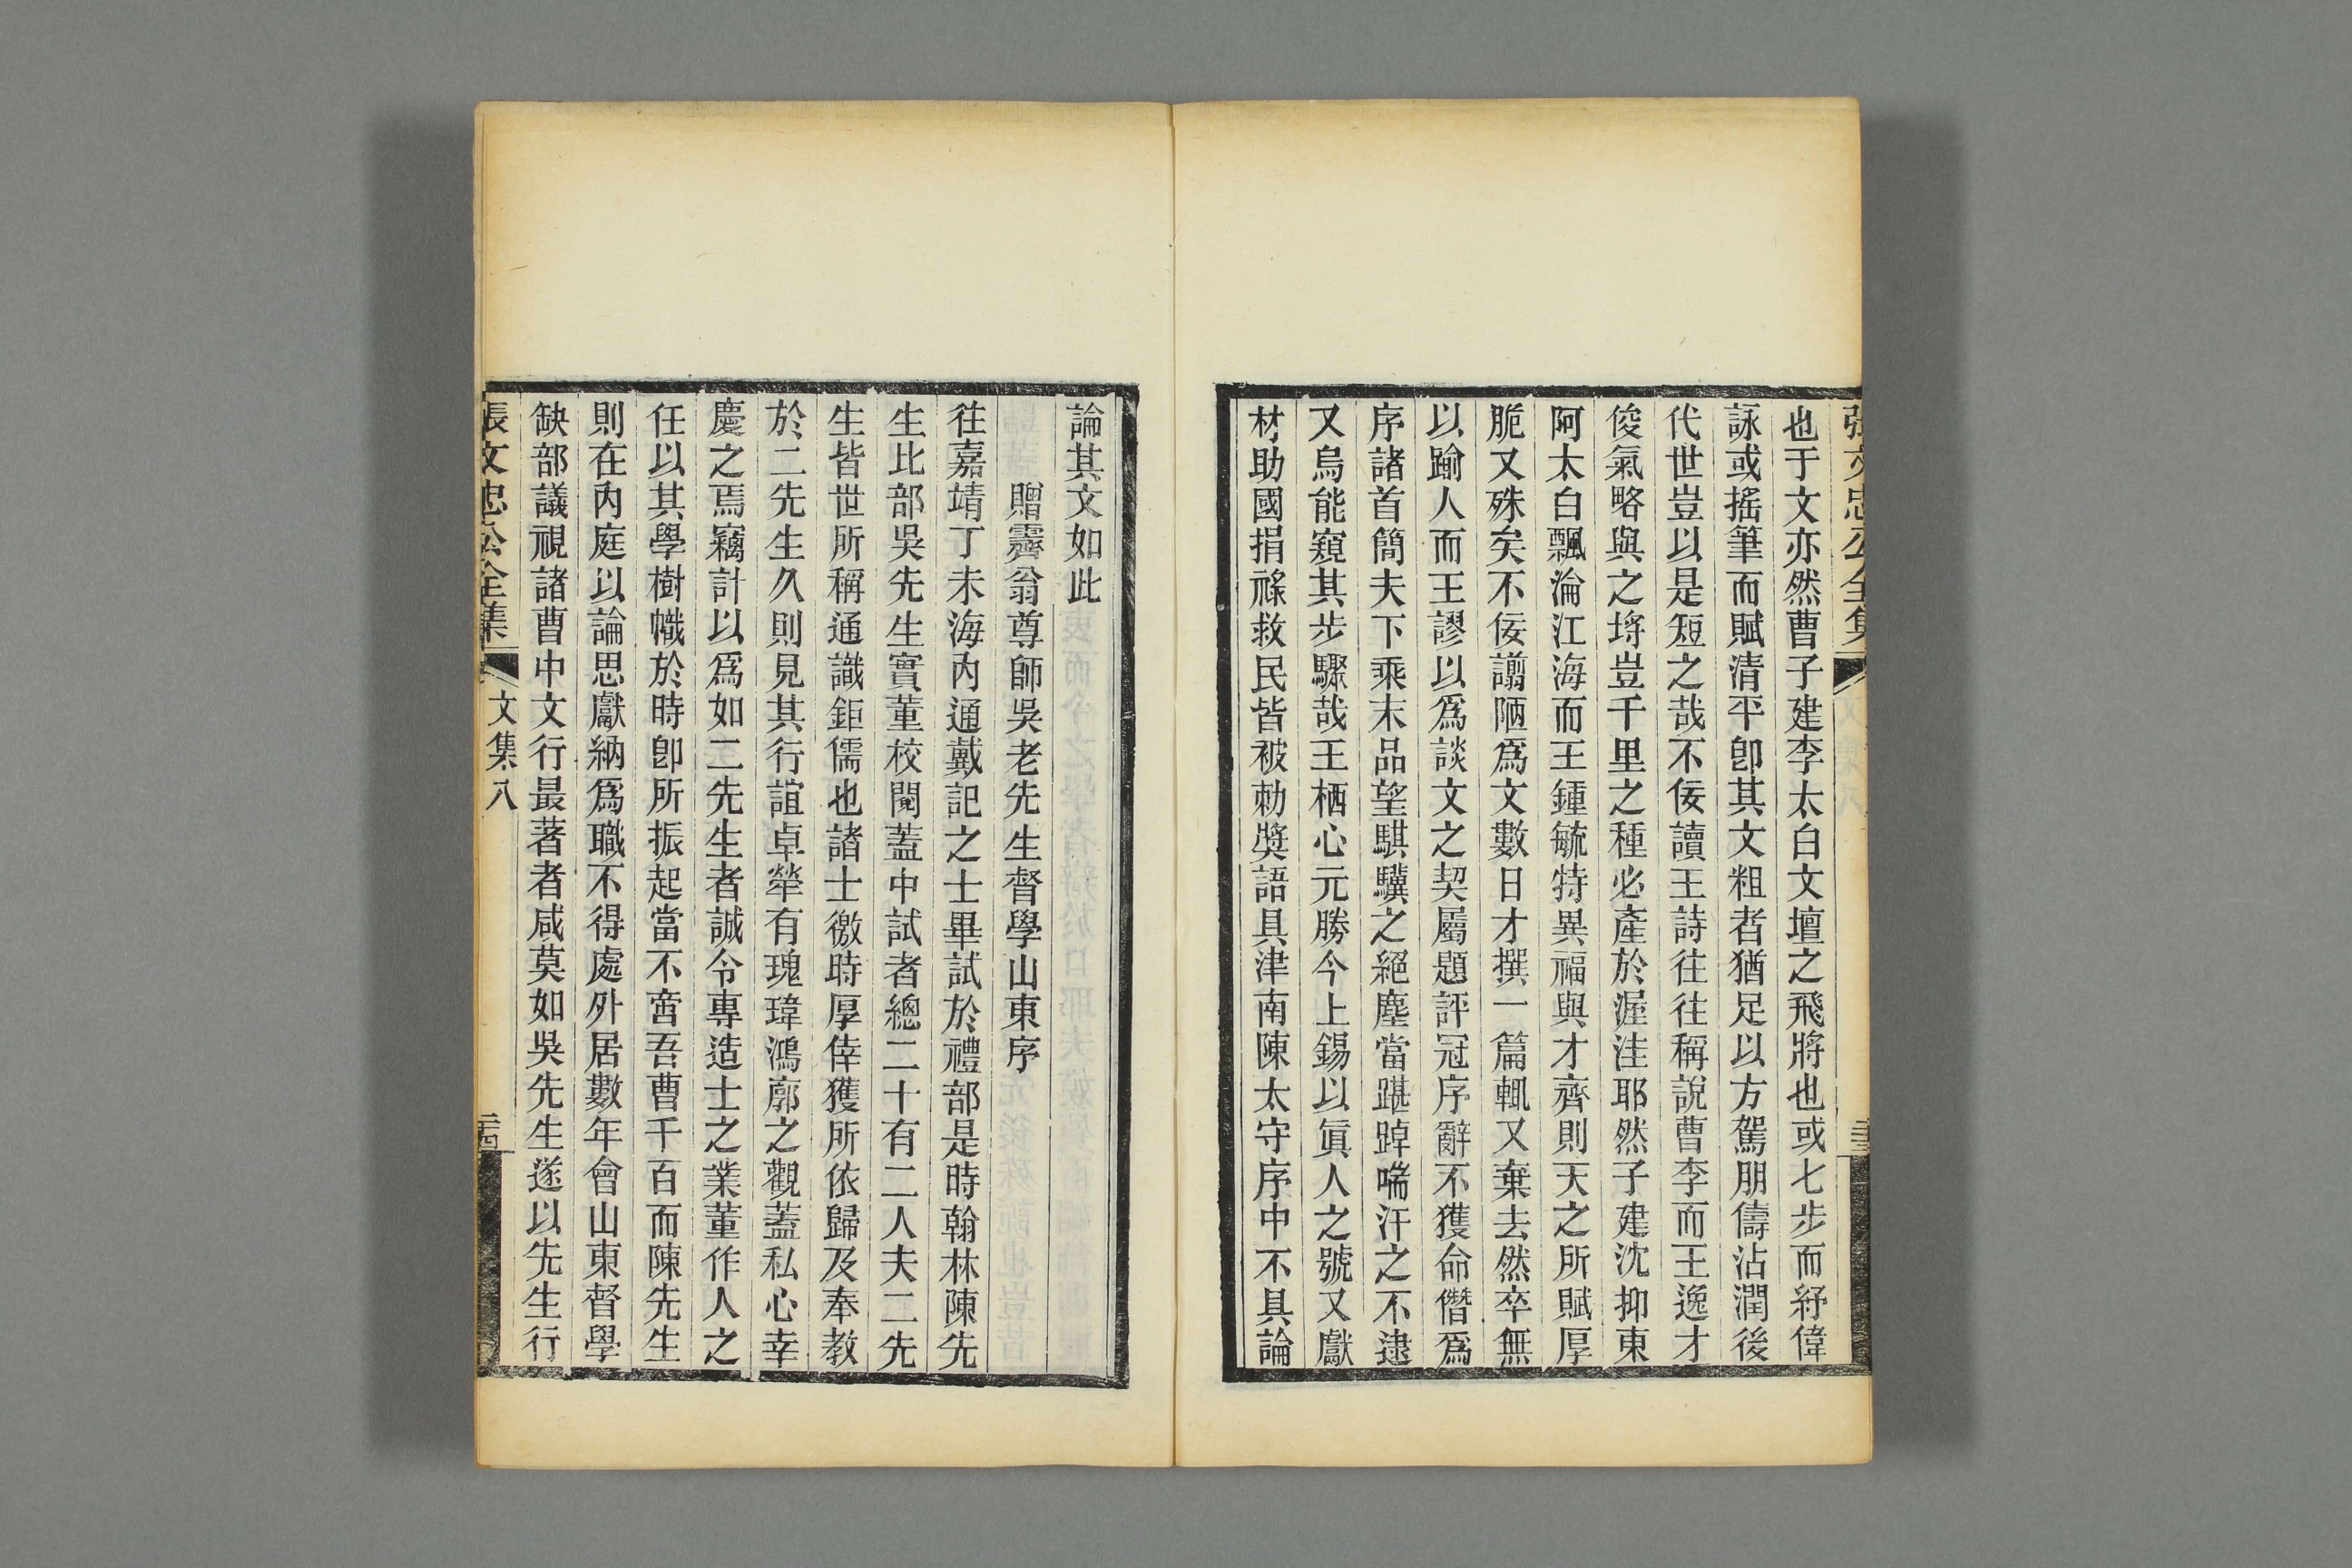 張文忠公全集
三十三
也于文亦然曹子建李太白文壇之飛將也或七步而紓偉
詠或搖筆而賦清平卽其文粗者猶足以方駕朋儔沾潤後
代世豈以是短之哉不佞讀王詩往往稱說曹李而王逸才
俊氣略與之埒豈千里之種必產於渥洼耶然子建沈抑東
阿太白飄淪江海而王鍾毓特異福與才齊則天之所賦厚
脆又殊矣不佞譾陋爲文數日才撰一篇輒又棄去然卒無
以踰人而王謬以爲談文之契屬題評冠序辭不獲命僭爲
序諸首簡夫下乘末品望騏驥之絕塵當踸踔喘汗之不逮
又烏能窺其步驟哉王栖心元勝今上錫以眞人之號又獻
材助國捐祿救民皆被勅獎語具津南陳太守序中不具論
論其文如此
贈霽翁尊師吳老先生督學山東序
往嘉靖丁未海內通戴記之士畢試於禮部是時翰林陳先
生比部吳先生實董校閱蓋中試者總二十有二人夫二先
生皆世所稱通識鉅儒也諸士徼時厚倖獲所依歸及奉教
於二先生久則見其行誼卓犖有瑰瑋鴻廓之觀蓋私心幸
慶之焉竊計以爲如二先生者誠令專造士之業董作人之
任以其學樹幟於時卽所振起當不啻吾曹千百而陳先生
則在內庭以論思獻納爲職不得處外居數年會山東督學
缺部議視諸曹中文行最著者咸莫如吳先生遂以先生行
張文忠公全集
文集八
三十四